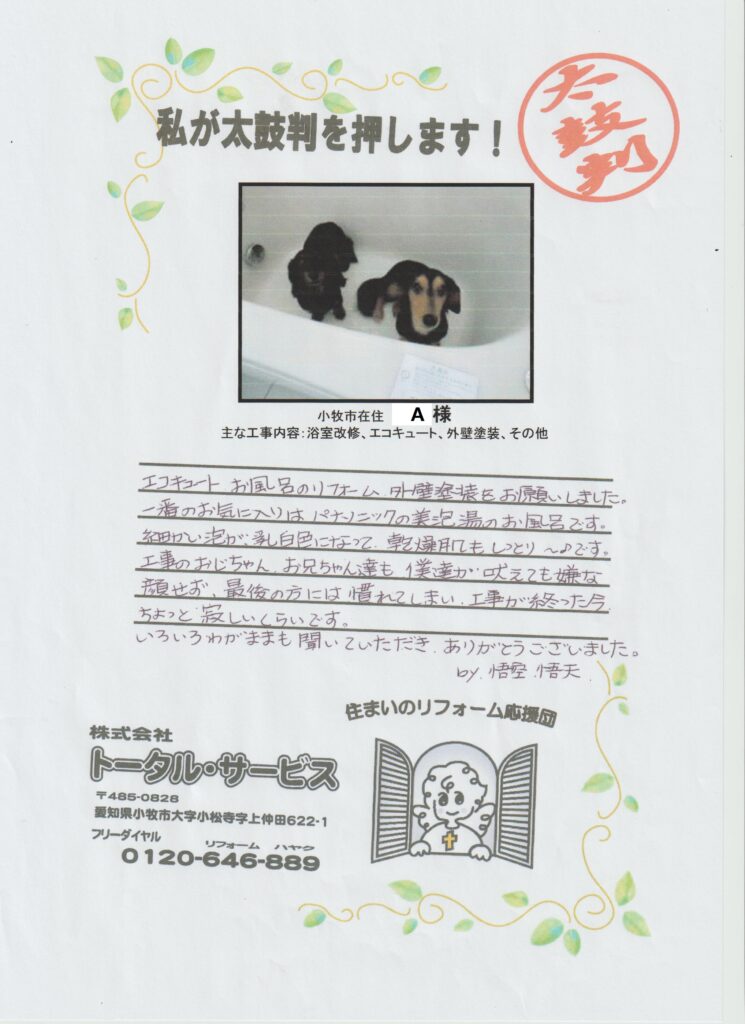 私が太鼓判を押します！
太鼓判
小牧市在住 A 様
主な工事内容：浴室改修、エコキュート、外壁塗装、その他
エコキュート お風呂のリフォーム 外壁塗装をお願いしました。
一番のお気に入りは パナソニックの美泡湯のお風呂です。
細かい泡が乳白色になって、乾燥肌もしっとり～♪です。
工事のおじちゃん、お兄ちゃん達も 僕達が吠えても嫌な
顔せず、最後の方には慣れてしまい、工事が終った今、
ちょっと寂しいくらいです。
いろいろわがままも聞いていただき、ありがとうございました。
by. 悟空. 悟天.
住まいのリフォーム応援団
株式会社
トータル・サービス
〒485-0828
愛知県小牧市大字小松寺字上仲田622-1
フリーダイヤル リフォーム ハヤク
0120-646-889